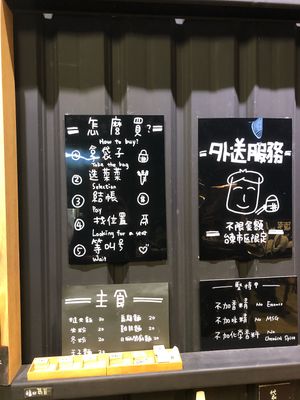 怎麼買?
How to buy!
① 拿袋子
Take the bag
② 選菜菜
Selection
③ 結帳
Pay
④ 找位置
Looking for a seat
⑤ 等叫號
Wait
外送服務
不限金額
台東市區限定
主食
20
冬粉 20
王子麵 20
烏龍麵 20
20
20
堅持中
不加香精 No Essence
不加味精 No MSG
不加化學香料 No Chemical Spice